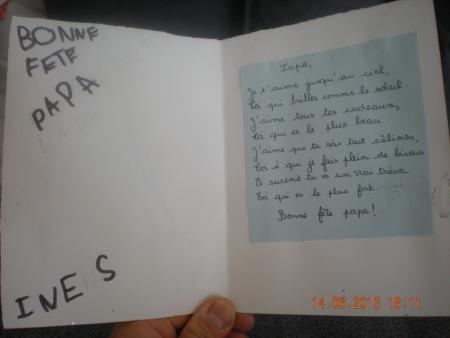 BONNE
FETE
PAPA
INES
Papa,
Je t'aime jusqu'au ciel,
Toi qui brilles comme le soleil.
J'aime tous tes cadeaux,
Toi qui es le plus beau
J'aime que tu sois tout câlins,
Toi à qui je fais plein de bisous
Et surtout tu es un vrai trésor
Toi qui es le plus fort.
Bonne fête papa!
14-06-2013 18:11